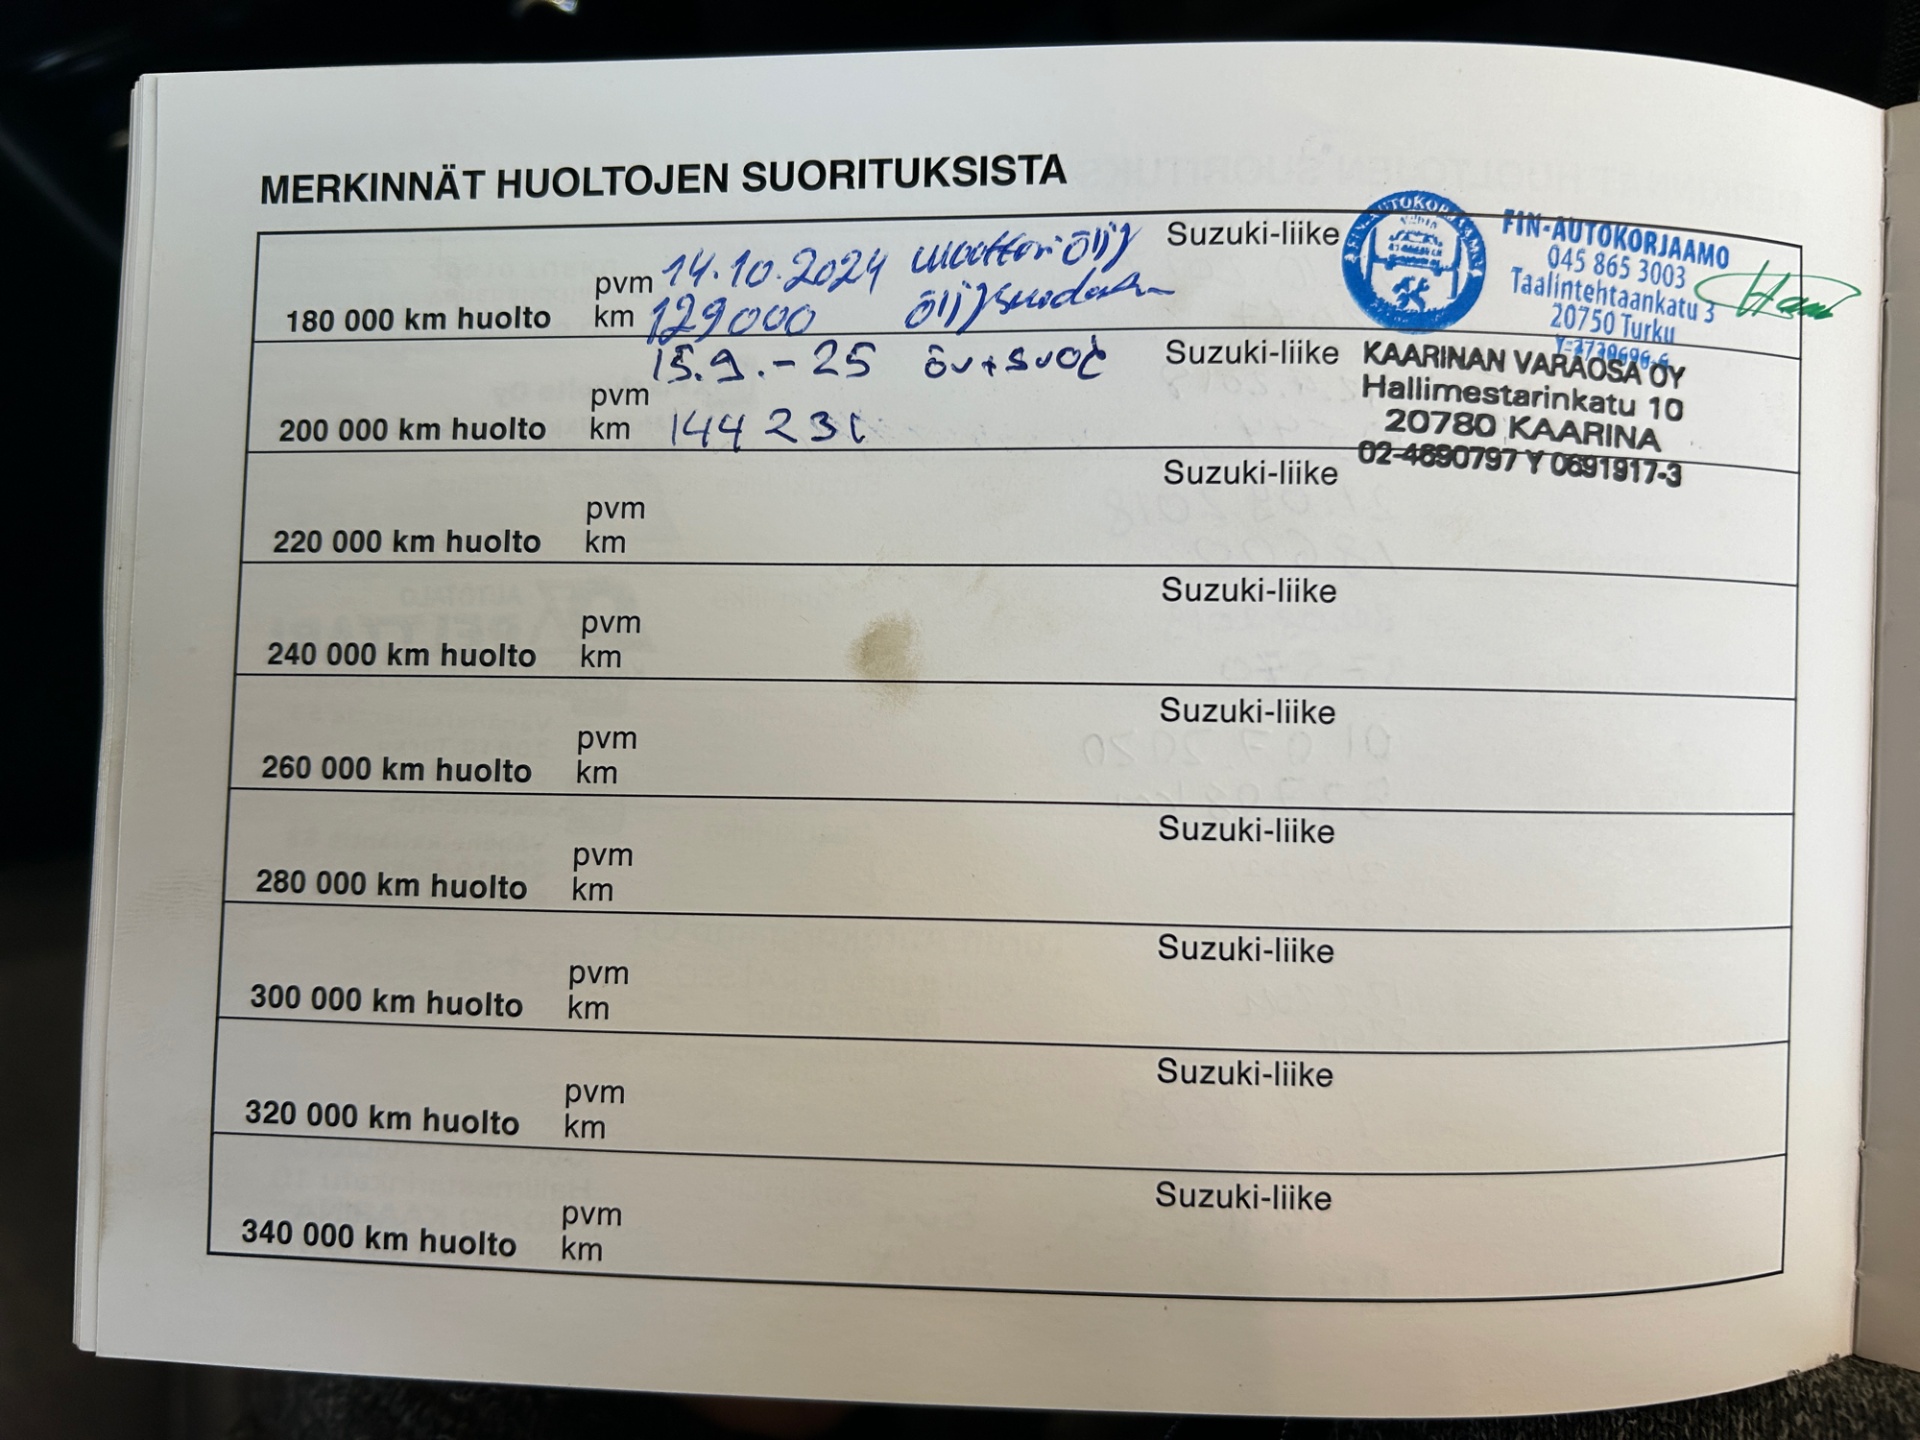 MERKINNÄT HUOLTOJEN SUORITUKSISTA
180 000 km huolto pvm 14.10.2024 moottoriöljy Suzuki-liike
km 129000 öljysuodatin
FIN-AUTOKORJAAMO
045 865 3003
Taalintehtaankatu 3
20750 Turku
200 000 km huolto pvm 15.9.-25 öv+suod Suzuki-liike
km 144231
KAARINAN VARAOSA OY
Hallimestarinkatu 10
20780 KAARINA
02-4690797 Y 0691917-3
220 000 km huolto pvm Suzuki-liike
km
240 000 km huolto pvm Suzuki-liike
km
260 000 km huolto pvm Suzuki-liike
km
280 000 km huolto pvm Suzuki-liike
km
300 000 km huolto pvm Suzuki-liike
km
320 000 km huolto pvm Suzuki-liike
km
340 000 km huolto pvm Suzuki-liike
km